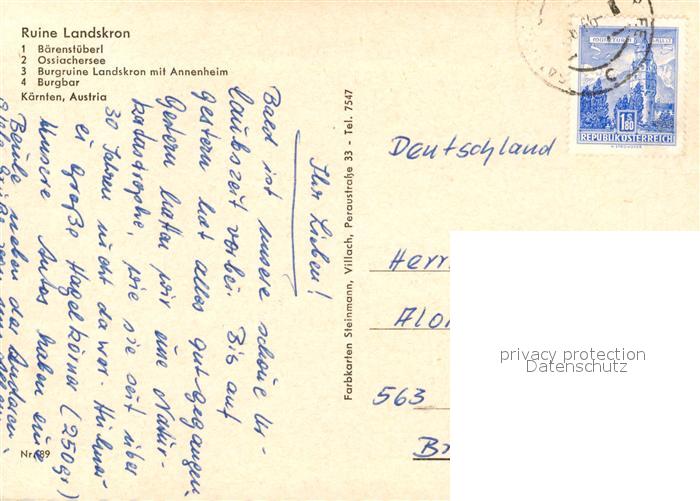 Ruine Landskron
1 Bärenstüberl
2 Ossiachersee
3 Burgruine Landskron mit Annenheim
4 Burgbar
Kärnten, Austria
Nr. 89
Ihr Lieben!
Bald ist unsere schöne Ur-
laubszeit vorbei. Bis auf
gestern hat alles gut gegangen.
Gestern hatten wir eine Natur-
katastrophe, wie sie seit über
30 Jahren nicht da war. Hühner-
ei große Hagelkörner (250gr)
Unsere Autos haben eine
Beule neben der anderen.
Viele Grüße von
Farbkarten Steinmann, Villach, Peraustraße 33 - Tel. 7547
REPUBLIK ÖSTERREICH
1.80
Deutschland
Herr
Aloi
563
B
privacy protection
Datenschutz